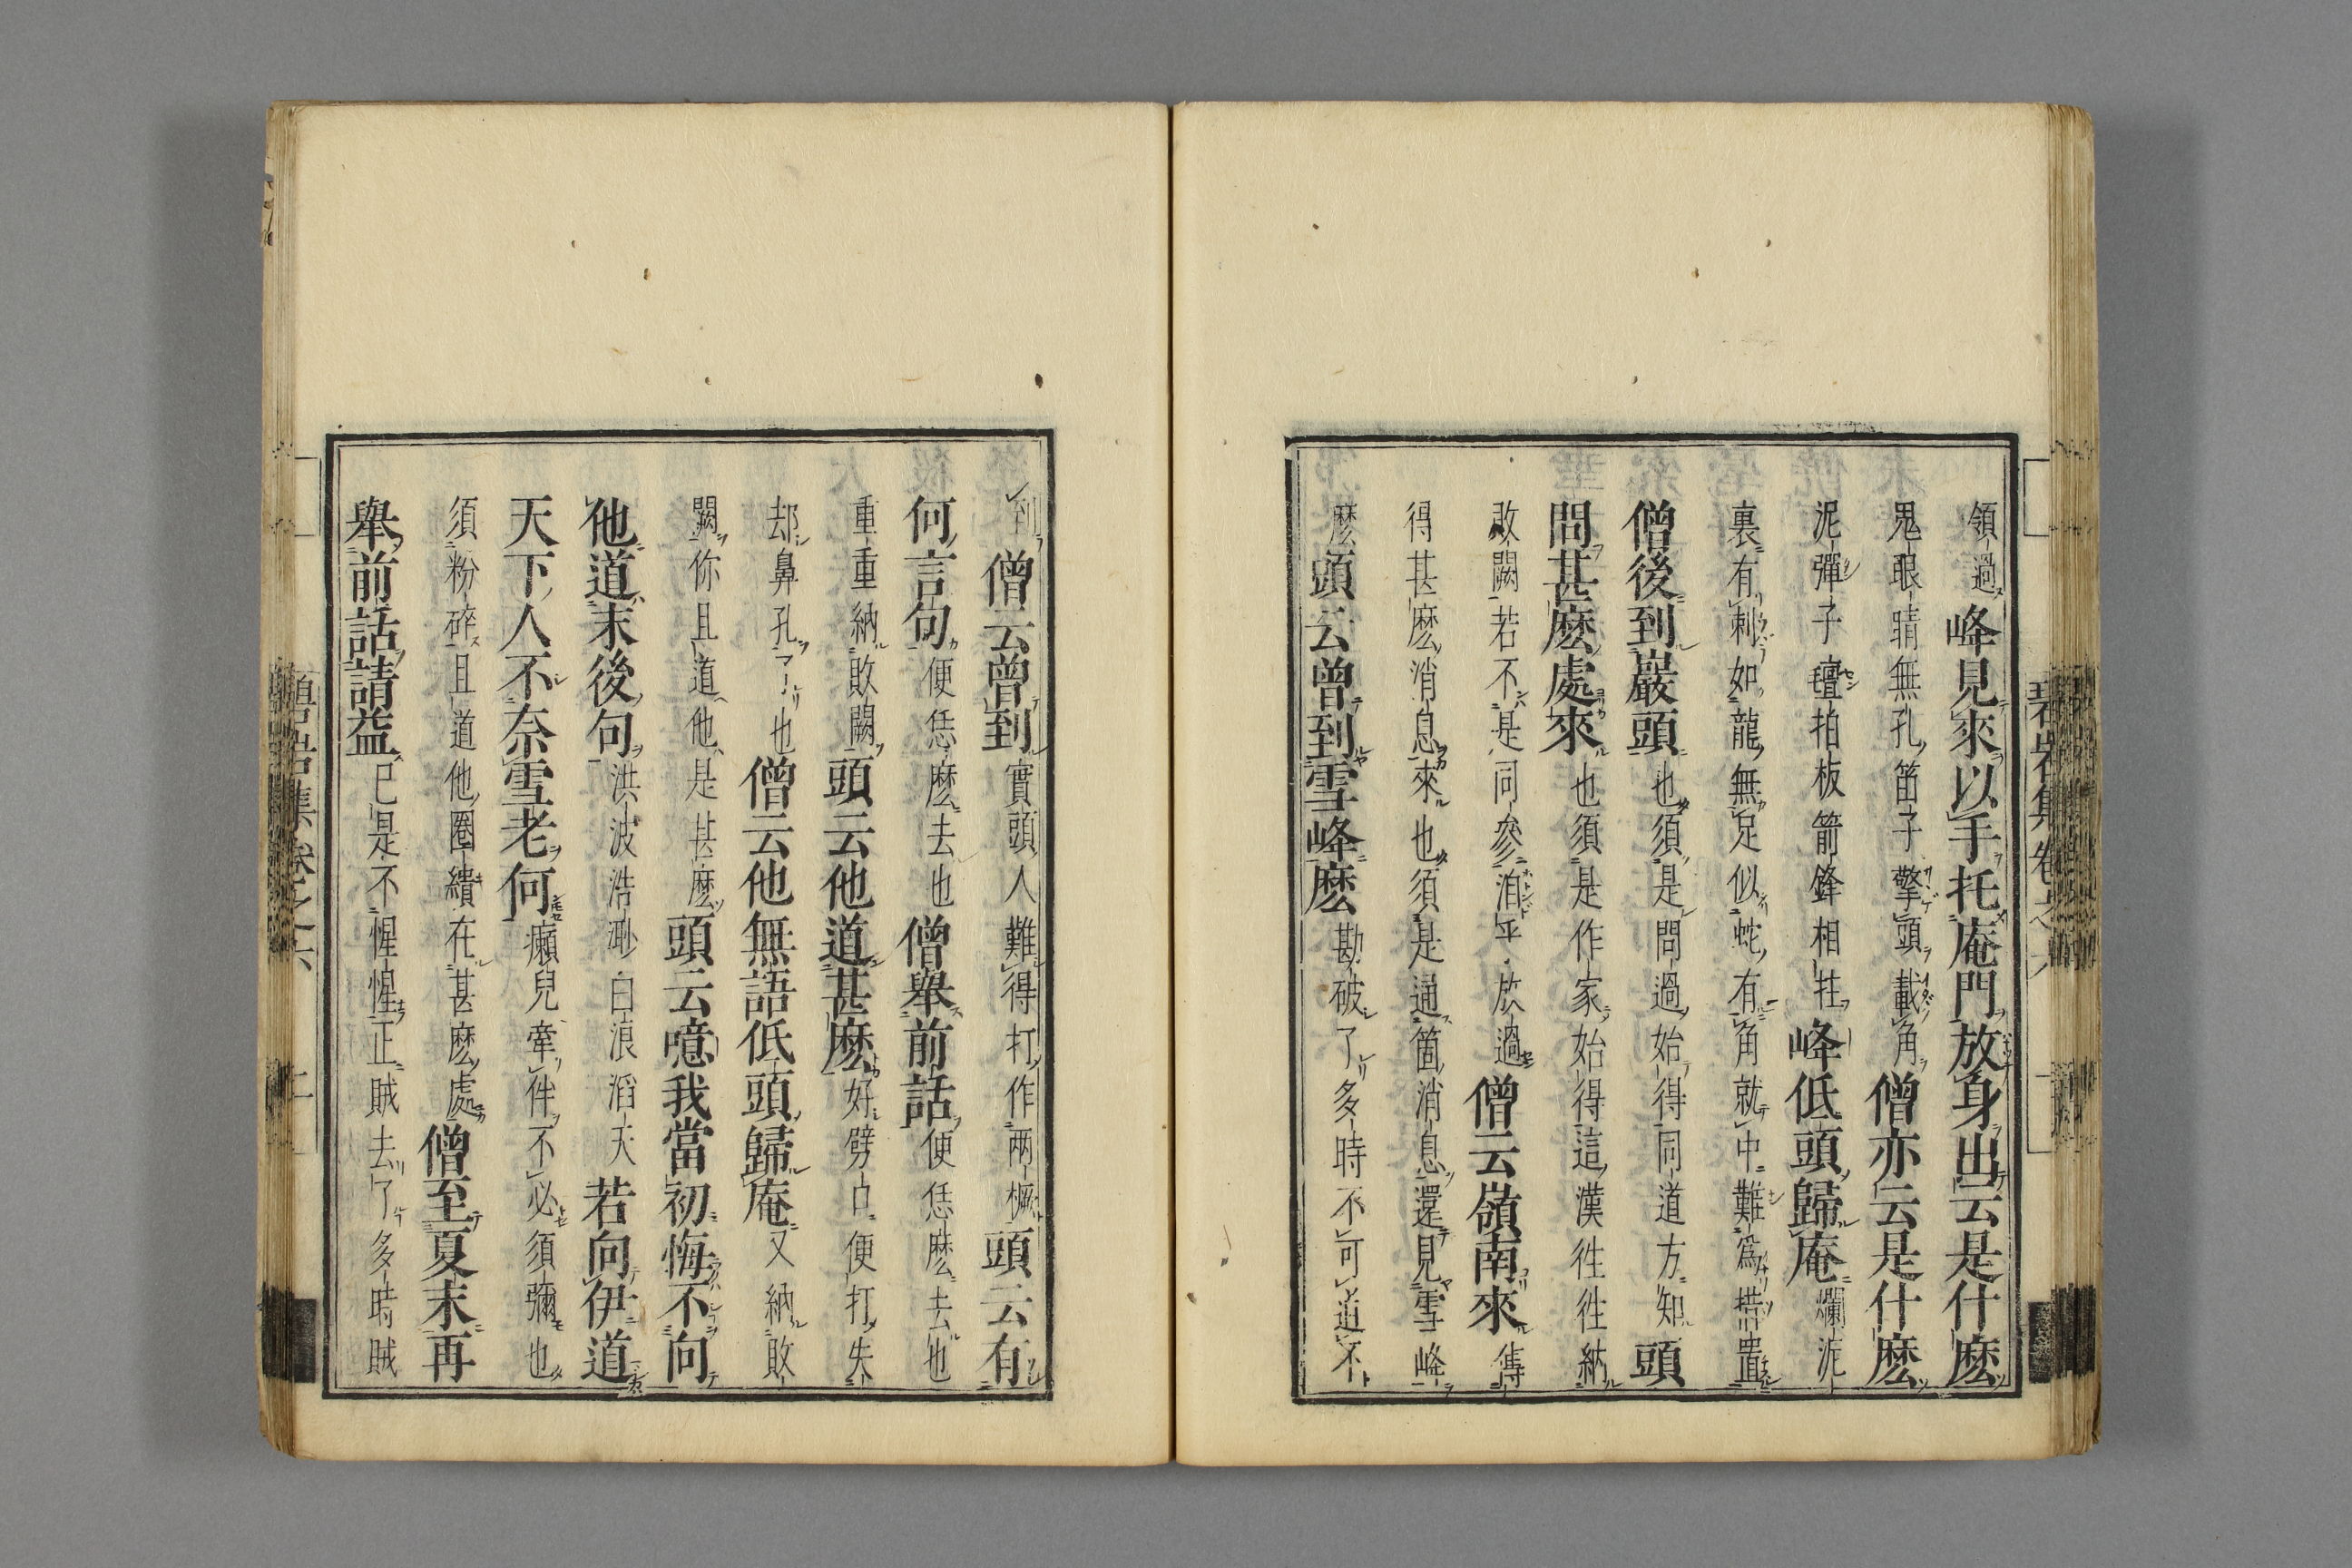 領過峰見來以手托庵門放身出云是什麼
鬼眼睛無孔笛子擎頭戴角僧亦云是什麼
泥彈子氈拍板箭鋒相拄峰低頭歸庵爛泥
裏有刺如龍無足似蛇有角就中難爲措置
僧後到巖頭也須是問過始得同道方知頭
問甚麼處來也須是作家始得這漢徃徃納
敗闕若不是同參洎乎放過僧云嶺南來傳
得甚麼消息來也須是通箇消息還見雪峰
麼頭云曾到雪峰麼勘破了多時不可道不
到僧云曾到實頭人難得打作兩橛頭云有
何言句便恁麼去也僧舉前話便恁麼去也
重重納敗闕頭云他道甚麼好劈口便打失
却鼻孔了也僧云他無語低頭歸庵又納敗
闕你且道他是甚麼頭云噫我當初悔不向
他道末後句洪波浩渺白浪滔天若向伊道
天下人不奈雪老何癩兒牽伴不必須彌也
須粉碎且道他圈繢在甚麼處僧至夏末再
舉前話請益已是不惺惺正賊去了多時賊
碧岩集卷之六